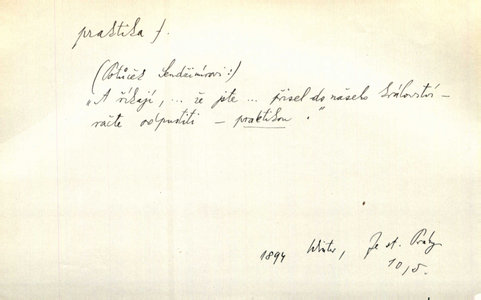 praktika f.
(Potůček Sendžimírovi:)
„A říkají, ... že jste ... přišel do našeho království –
račte odpustiti – praktikou."
1894 Winter, Ze st. Prahy
10, 5.